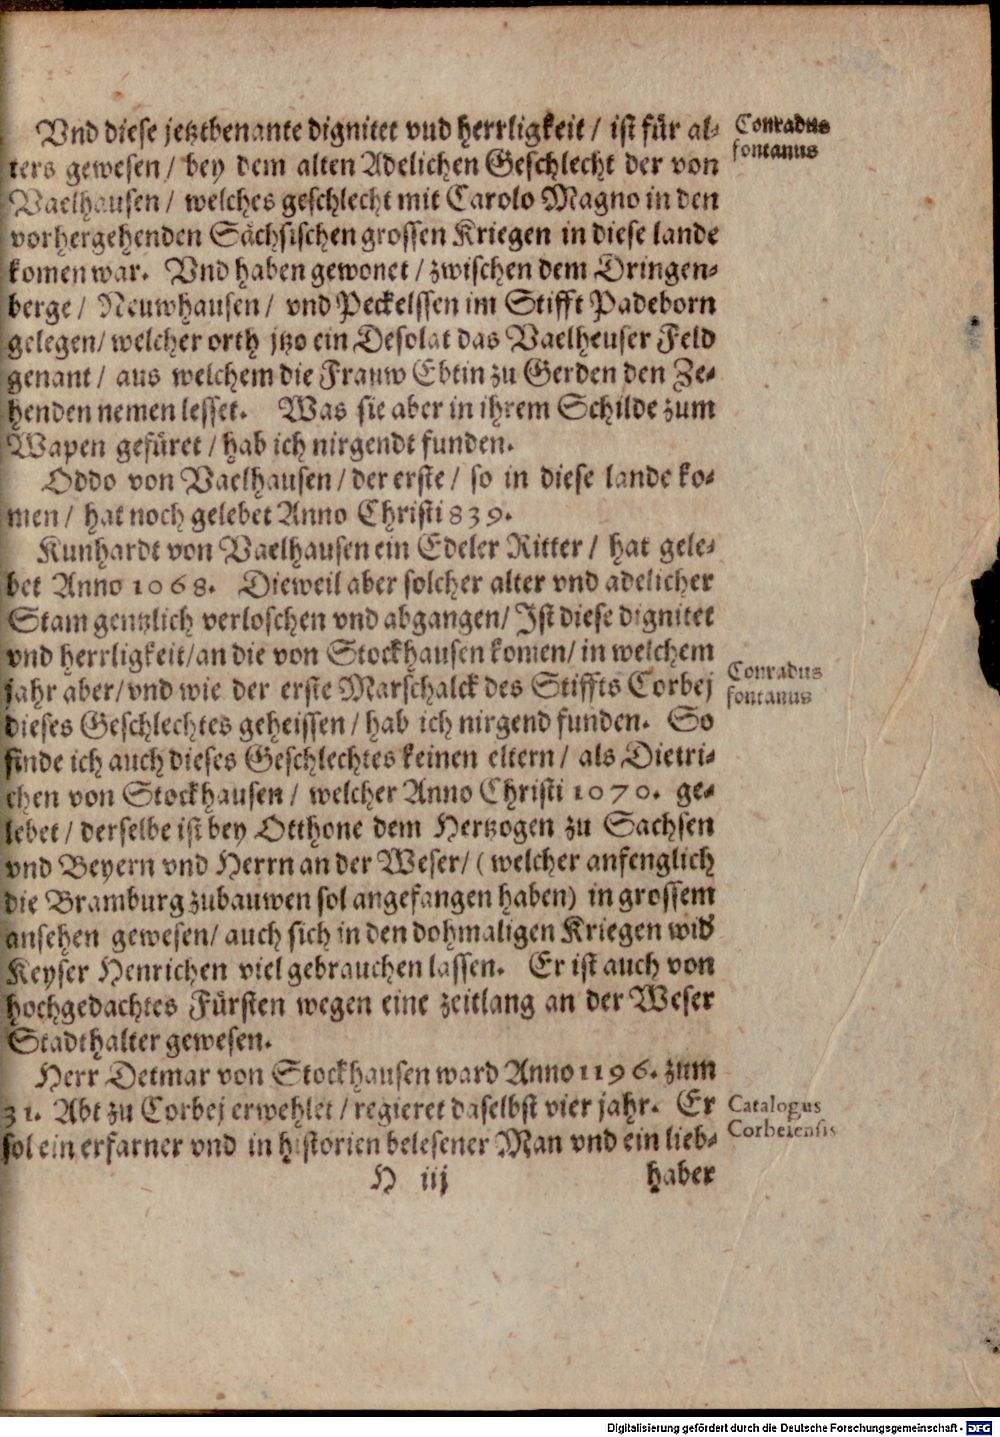 Vnd diese jetztbenante dignitet vnd herrligkeit / ist für al- Conradus
ters gewesen / bey dem alten Adelichen Geschlecht der von fontanus
Vaelhausen / welches geschlecht mit Carolo Magno in den
vorhergehenden Sächsischen grossen Kriegen in diese lande
komen war. Vnd haben gewonet / zwischen dem Dringen-
berge / Neuwhausen / vnd Peckelssen im Stifft Padeborn
gelegen / welcher orth jtzo ein Desolat das Vaelheuser Feld
genant / aus welchem die Frauw Ebtin zu Gerden den Ze-
henden nemen lesset. Was sie aber in ihrem Schilde zum
Wapen gefüret / hab ich nirgendt funden.
Oddo von Vaelhausen / der erste / so in diese lande ko-
men / hat noch gelebet Anno Christi 839.
Kunhardt von Vaelhausen ein Edeler Ritter / hat gele-
bet Anno 1068. Dieweil aber solcher alter vnd adelicher
Stam gentzlich verloschen vnd abgangen / Ist diese dignitet
vnd herrligkeit / an die von Stockhausen komen / in welchem
jahr aber / vnd wie der erste Marschalck des Stiffts Corbej Conradus
dieses Geschlechtes geheissen / hab ich nirgend funden. So fontanus
finde ich auch dieses Geschlechtes keinen eltern / als Dietri-
chen von Stockhausen / welcher Anno Christi 1070. ge-
lebet / derselbe ist bey Otthone dem Hertzogen zu Sachsen
vnd Beyern vnd Herrn an der Weser / ( welcher anfenglich
die Bramburg zubauwen sol angefangen haben) in grossem
ansehen gewesen / auch sich in den dohmaligen Kriegen wid'
Keyser Henrichen viel gebrauchen lassen. Er ist auch von
hochgedachtes Fürsten wegen eine zeitlang an der Weser
Stadthalter gewesen.
Herr Detmar von Stockhausen ward Anno 1196. zum
31. Abt zu Corbej erwehlet / regieret daselbst vier jahr. Er Catalogus
sol ein erfarner vnd in historien belesener Man vnd ein lieb- Corbeiensis
H iij haber
Digitalisierung gefördert durch die Deutsche Forschungsgemeinschaft - DFG